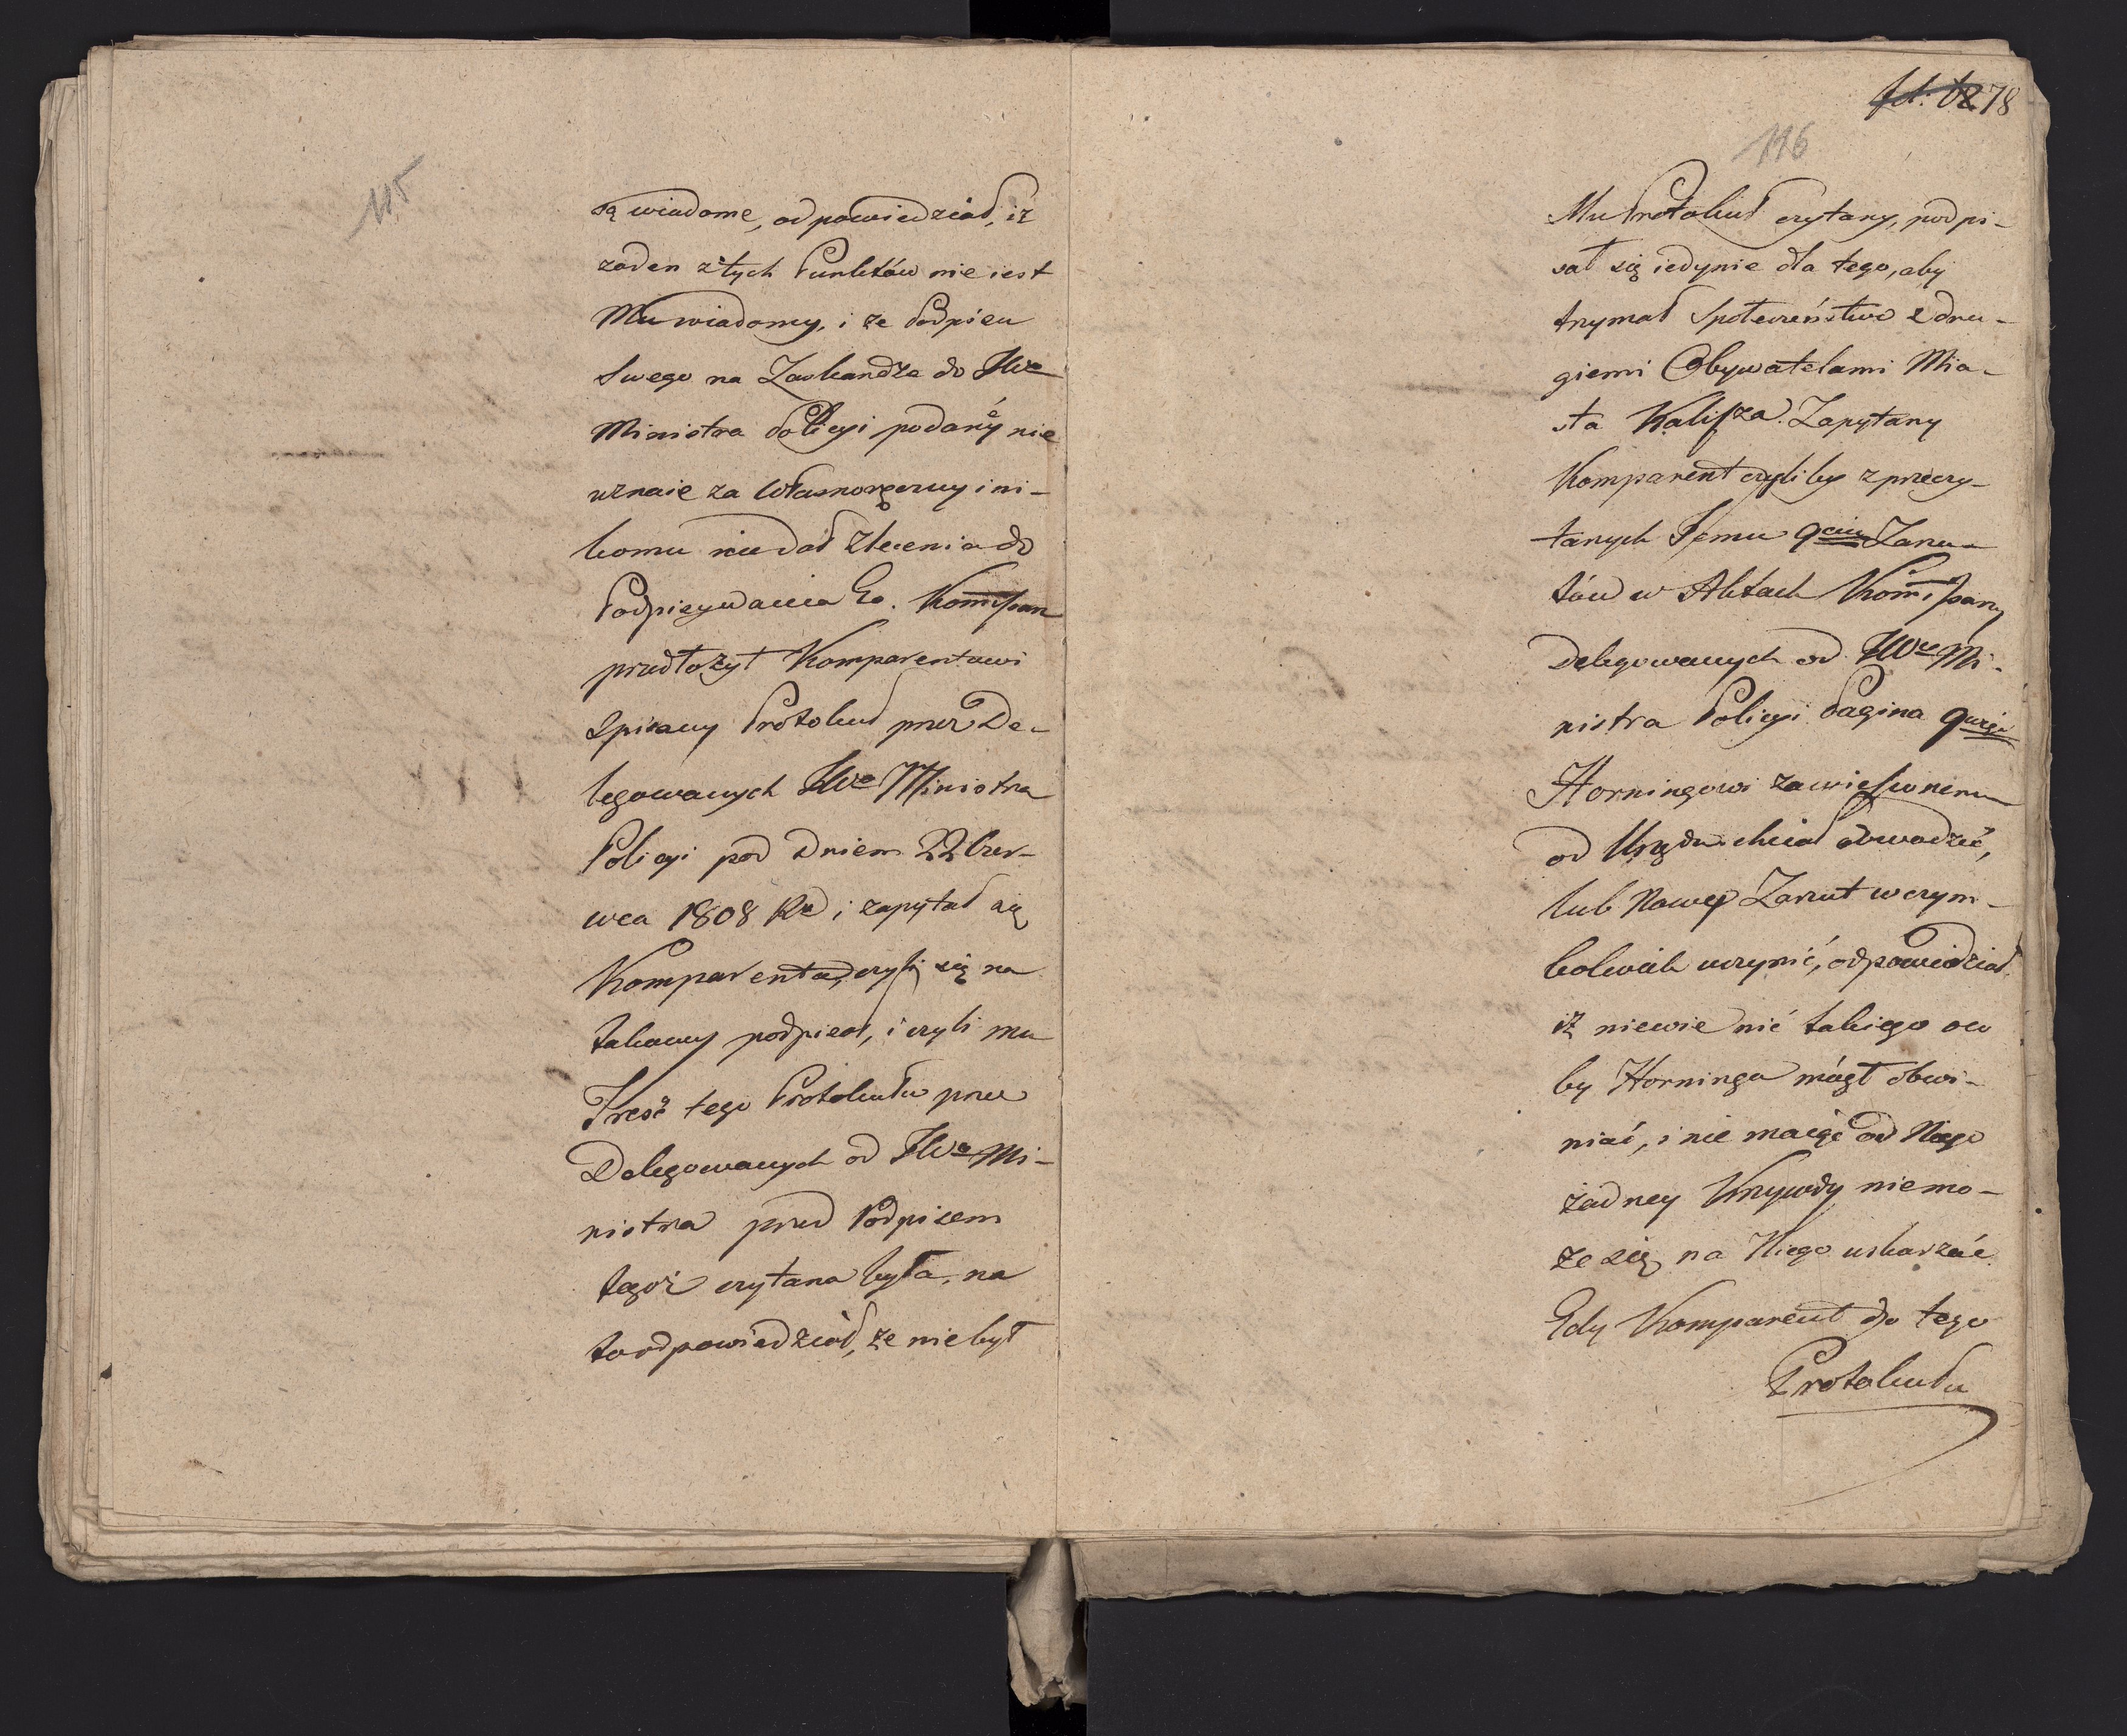 115
są wiadome, odpowiedział, iż
żaden z tych Punktów nie iest
Mu wiadomy, i że Podpisu
Swego na Zaskardze do JWo
Ministra Policyi podaney nie
uznaie za własnoręczny i ni-
komu nie dał Zlecenia do
Podpisywania Go. Kommissarz
przedłożył Komparentowi
Spisany Protokuł przez De-
legowanych JWo Ministra
Policyi pod Dniem 22 Czer-
wca 1808 Ro i zapytał się
Komparenta, czyli się na
takowy podpisał, i czyli mu
Treść tego Protokułu przez
Delegowanych od JWo Mi-
nistra przed Podpisem
tegoż czytana była, na
to odpowiedział, że nie był
fol. 62 78
116
Mu Protokuł czytany, podpi-
sał się iedynie dla tego, aby
trzymał Społeczeństwo z dru-
giemi Obywatelami Mia-
sta Kalisza. Zapytany
Komparent czyliby z przeczy-
tanych Jemu 9ciu Zarzu-
tów w Aktach Kommissarzy
Delegowanych od JWo Mi-
nistra Policyi Pagina
Horningowi zawieszonemu
od Urzędu chciał dowodzić,
lub Nowy Zarzut w czym-
kolwiek uczynić, odpowiedział,
iż niewie nić takiego oco
by Horninga mógł obwi-
niać, i nie maiąc od Niego
żadney Krzywdy niemo-
że się na Niego uskarżać.
Gdy Komparent do tego
Protokułu